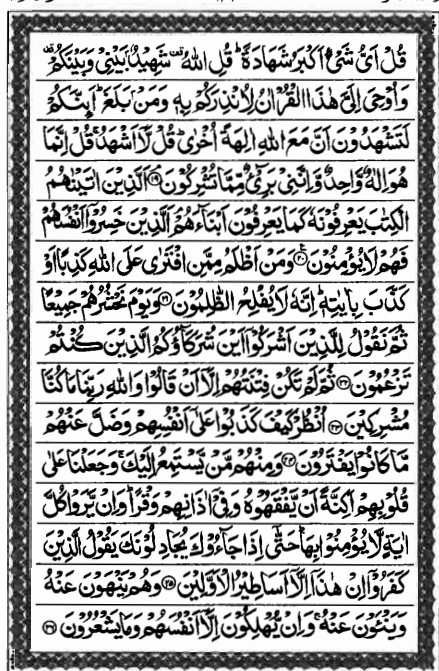 قُلْ اَىُّ شَىْءٍ اَكْبَرُ شَهَادَةًؕ قُلِ اللّٰهُ شَهِيْدٌۢ بَيْنِىْ وَبَيْنَكُمْ
وَاُوْحِىَ اِلَىَّ هٰذَا الْقُرْاٰنُ لِاُنْذِرَكُمْ بِهٖ وَمَنْۢ بَلَغَؕ اَئِنَّكُمْ
لَتَشْهَدُوْنَ اَنَّ مَعَ اللّٰهِ اٰلِهَةً اُخْرٰىؕ قُلْ لَّاۤ اَشْهَدُۚ قُلْ اِنَّمَا
هُوَ اِلٰهٌ وَّاحِدٌ وَّاِنَّنِىْ بَرِىْٓءٌ مِّمَّا تُشْرِكُوْنَ ۝۱۹ اَلَّذِيْنَ اٰتَيْنٰهُمُ
الْكِتٰبَ يَعْرِفُوْنَهٗ كَمَا يَعْرِفُوْنَ اَبْنَآءَهُمْۘ اَلَّذِيْنَ خَسِرُوْۤا اَنْفُسَهُمْ
فَهُمْ لَا يُؤْمِنُوْنَ ۝۲۰ وَمَنْ اَظْلَمُ مِمَّنِ افْتَرٰى عَلَى اللّٰهِ كَذِبًا اَوْ
كَذَّبَ بِاٰيٰتِهٖؕ اِنَّهٗ لَا يُفْلِحُ الظّٰلِمُوْنَ ۝۲۱ وَيَوْمَ نَحْشُرُهُمْ جَمِيْعًا
ثُمَّ نَقُوْلُ لِلَّذِيْنَ اَشْرَكُوْۤا اَيْنَ شُرَكَآؤُكُمُ الَّذِيْنَ كُنْتُمْ
تَزْعُمُوْنَ ۝۲۲ ثُمَّ لَمْ تَكُنْ فِتْنَتُهُمْ اِلَّاۤ اَنْ قَالُوْا وَاللّٰهِ رَبِّنَا مَا كُنَّا
مُشْرِكِيْنَ ۝۲۳ اُنْظُرْ كَيْفَ كَذَبُوْا عَلٰٓى اَنْفُسِهِمْ وَضَلَّ عَنْهُمْ
مَّا كَانُوْا يَفْتَرُوْنَ ۝۲۴ وَمِنْهُمْ مَّنْ يَّسْتَمِعُ اِلَيْكَۚ وَجَعَلْنَا عَلٰى
قُلُوْبِهِمْ اَكِنَّةً اَنْ يَّفْقَهُوْهُ وَفِىْۤ اٰذَانِهِمْ وَقْرًاؕ وَاِنْ يَّرَوْا كُلَّ
اٰيَةٍ لَّا يُؤْمِنُوْا بِهَاؕ حَتّٰٓى اِذَا جَآءُوْكَ يُجَادِلُوْنَكَ يَقُوْلُ الَّذِيْنَ
كَفَرُوْۤا اِنْ هٰذَاۤ اِلَّاۤ اَسَاطِيْرُ الْاَوَّلِيْنَ ۝۲۵ وَهُمْ يَنْهَوْنَ عَنْهُ
وَيَنْـَٔوْنَ عَنْهُۚ وَاِنْ يُّهْلِكُوْنَ اِلَّاۤ اَنْفُسَهُمْ وَمَا يَشْعُرُوْنَ ۝۲۶